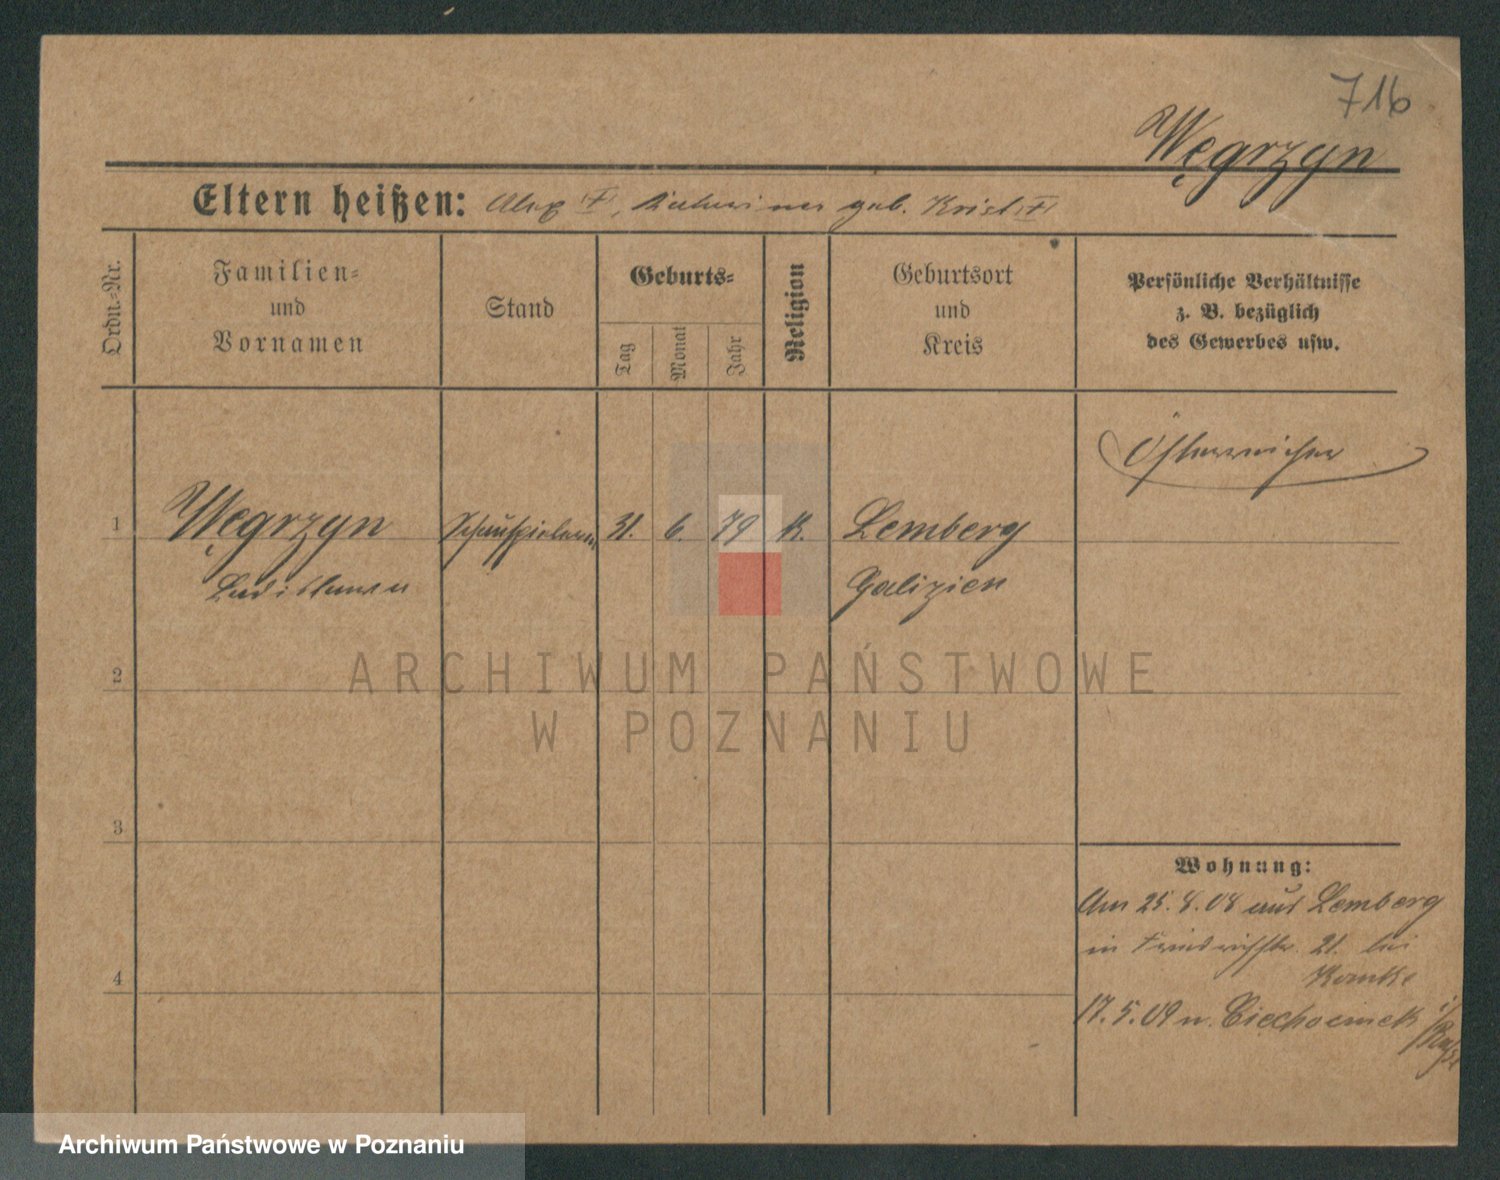 716
Węgrzyn
Eltern heißen: Alex (†), geb. Krist (†)
Ordn.=Nr.
Familien=
und
Vornamen
Stand
Geburts=
Tag
Monat
Jahr
Religion
Geburtsort
und
Kreis
Persönliche Verhältnisse
z. B. bezüglich
des Gewerbes usw.
Österreicher
1
Węgrzyn
Schauspielerin
31.
6.
79
K.
Lemberg
Galizien
2
ARCHIWUM PAŃSTWOWE
W POZNANIU
3
Wohnung:
Am 25.8.08 aus Lemberg
in Friedrichstr. 21. bei
4
17.5.09 n. Ciechocinek i/
Archiwum Państwowe w Poznaniu